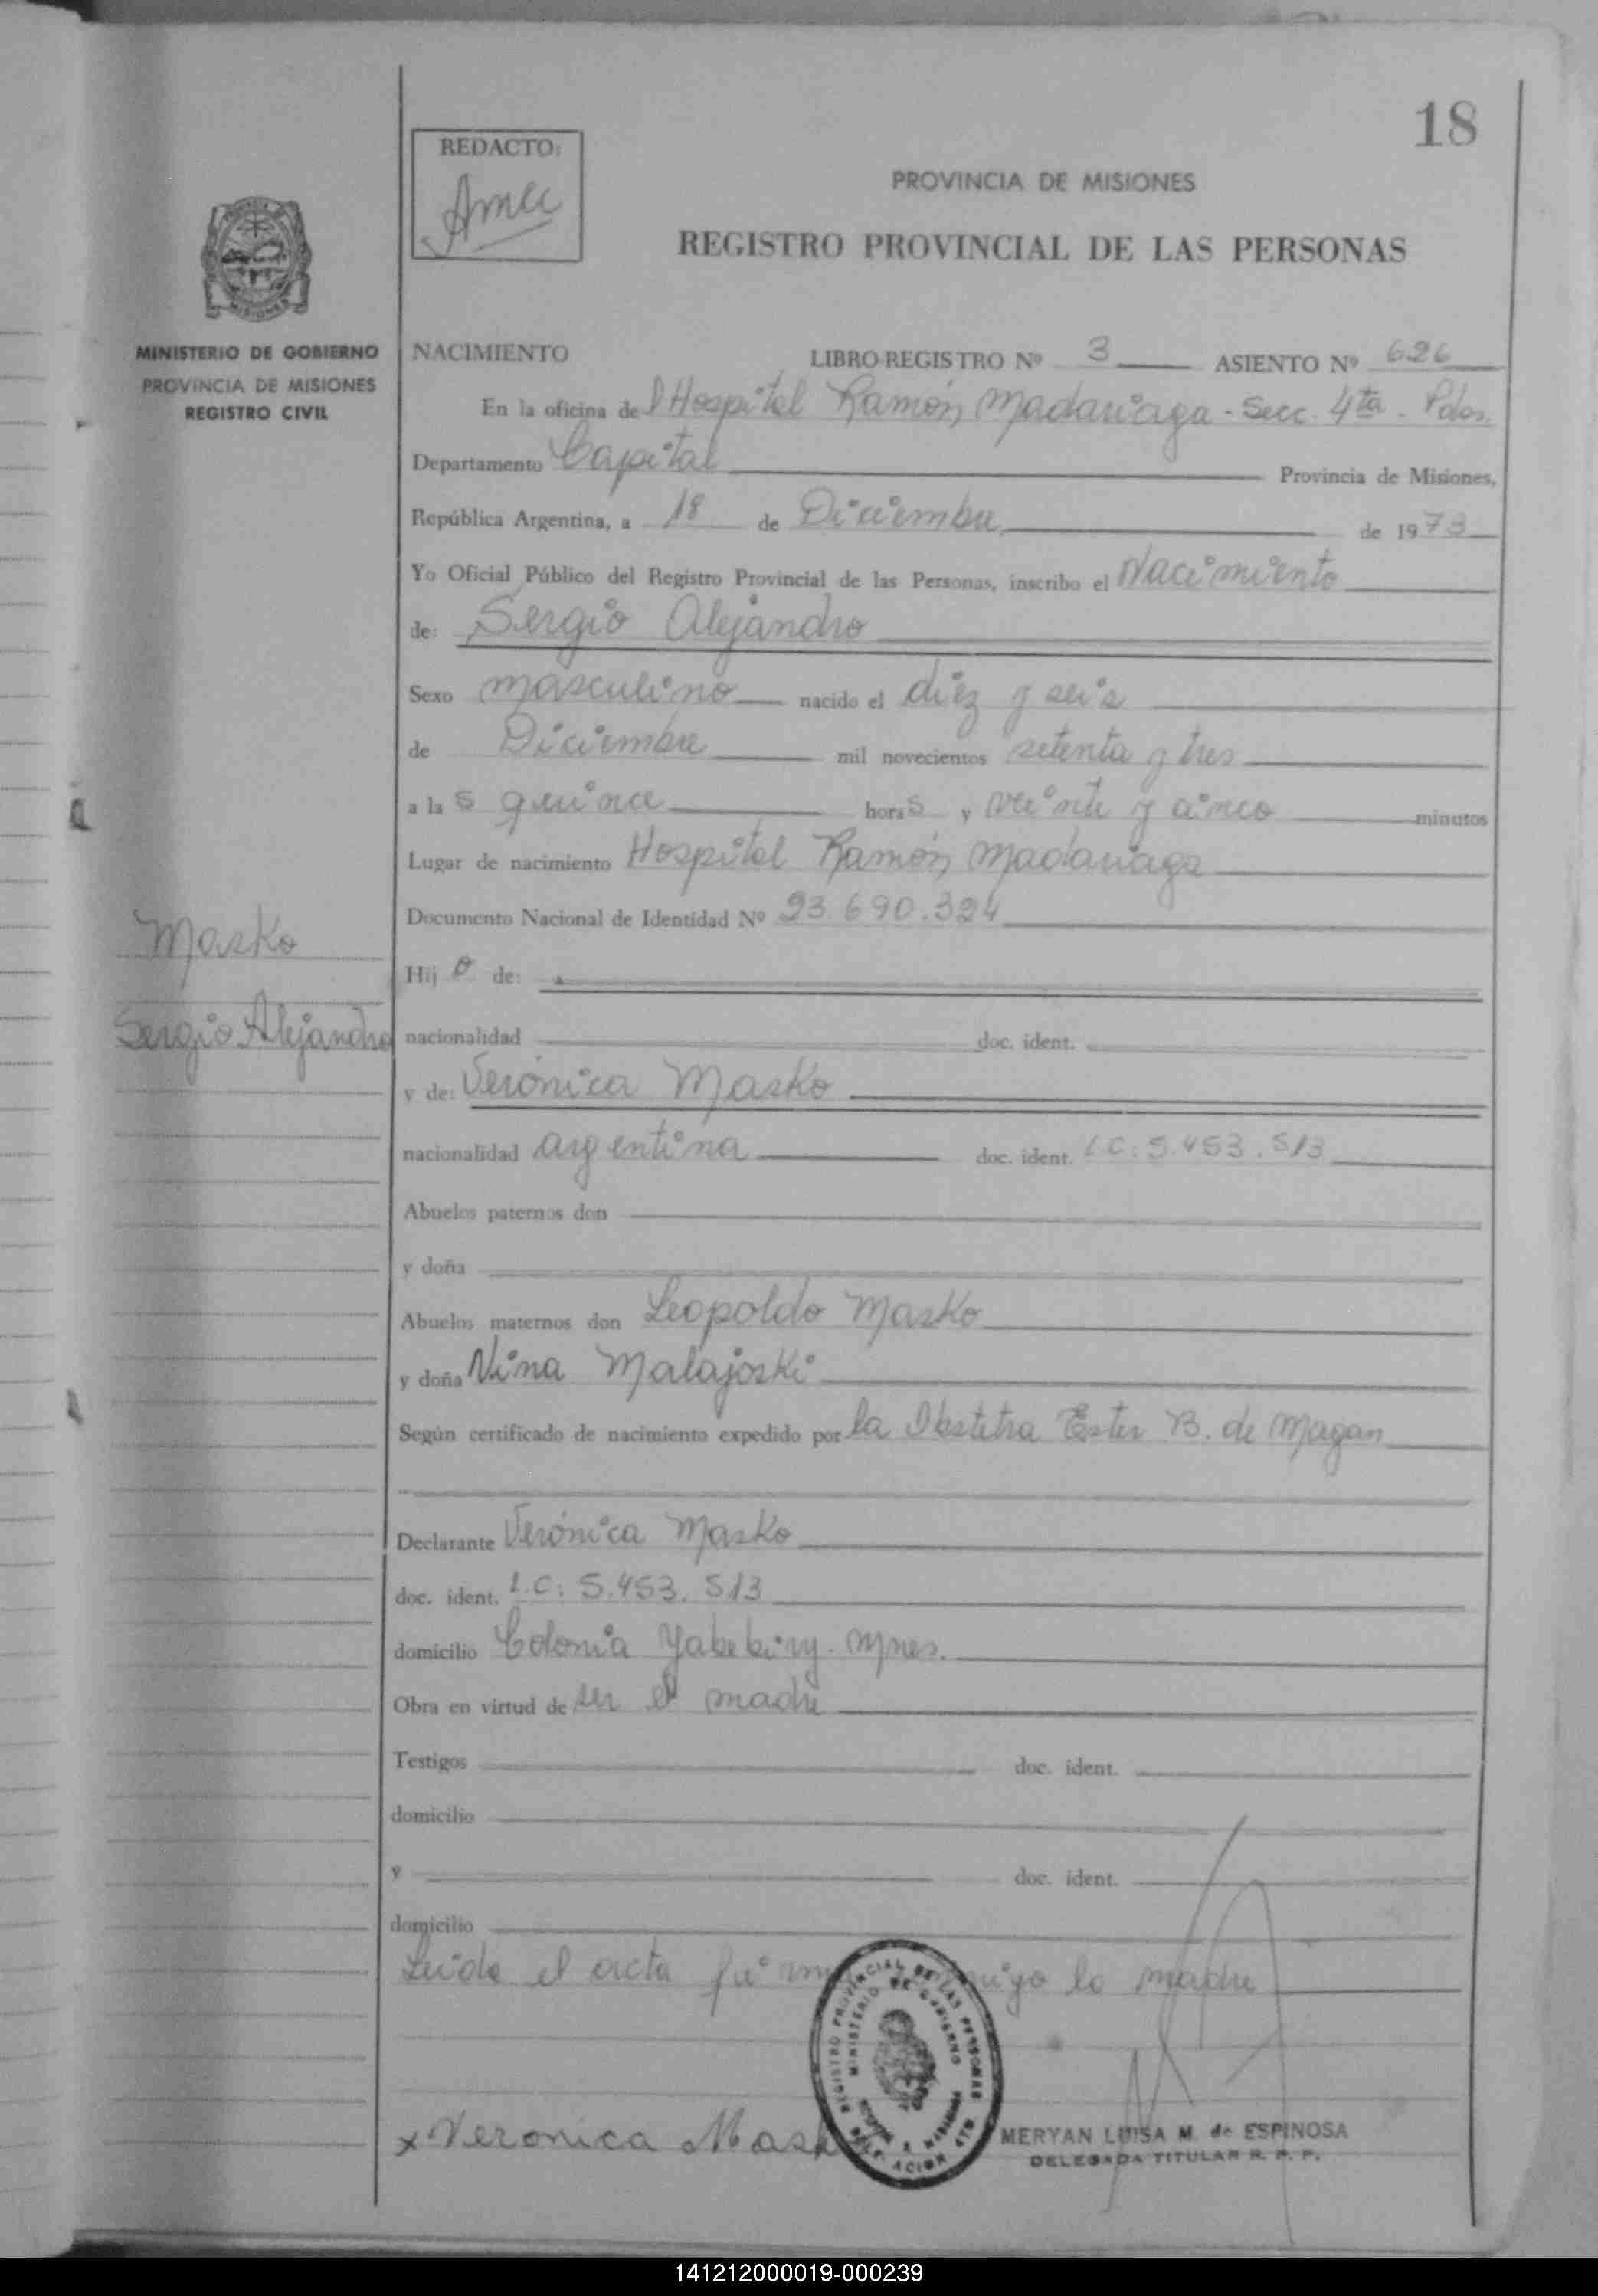 18
REDACTO:
PROVINCIA DE MISIONES
REGISTRO PROVINCIAL DE LAS PERSONAS
MINISTERIO DE GOBIERNO
PROVINCIA DE MISIONES
REGISTRO CIVIL
NACIMIENTO LIBRO-REGISTRO Nº 3 ASIENTO Nº 626
En la oficina del Hospital Ramón Madariaga - Secc. 4ta - Pdas.
Departamento Capital Provincia de Misiones,
República Argentina, a 18 de Diciembre de 1973
Yo Oficial Público del Registro Provincial de las Personas, inscribo el Nacimiento
de: Sergio Alejandro
Sexo masculino nacido el diez y seis
de Diciembre mil novecientos setenta y tres
a las quince horas y veinte y cinco minutos
Lugar de nacimiento Hospital Ramón Madariaga
Documento Nacional de Identidad Nº 23.690.324
Masko
Hijo de:
Sergio Alejandro
nacionalidad doc. ident.
y de: Verónica Masko
nacionalidad argentina doc. ident. L.C: 5.453.513
Abuelos paternos don
y doña
Abuelos maternos don Leopoldo Masko
y doña Nina Malajoski
Según certificado de nacimiento expedido por la Obstetra Ester B. de Magan
Declarante Verónica Masko
doc. ident. L.C: 5.453.513
domicilio Colonia Yabebiry - Mnes.
Obra en virtud de ser el madre
Testigos doc. ident.
domicilio
y doc. ident.
domicilio
Leida el acta la madre
REGISTRO PROVINCIAL DE LAS PERSONAS
MINISTERIO DE GOBIERNO
x Veronica
MERYAN LUISA M. de ESPINOSA
DELEGADA TITULAR R. P. P.
141212000019-000239